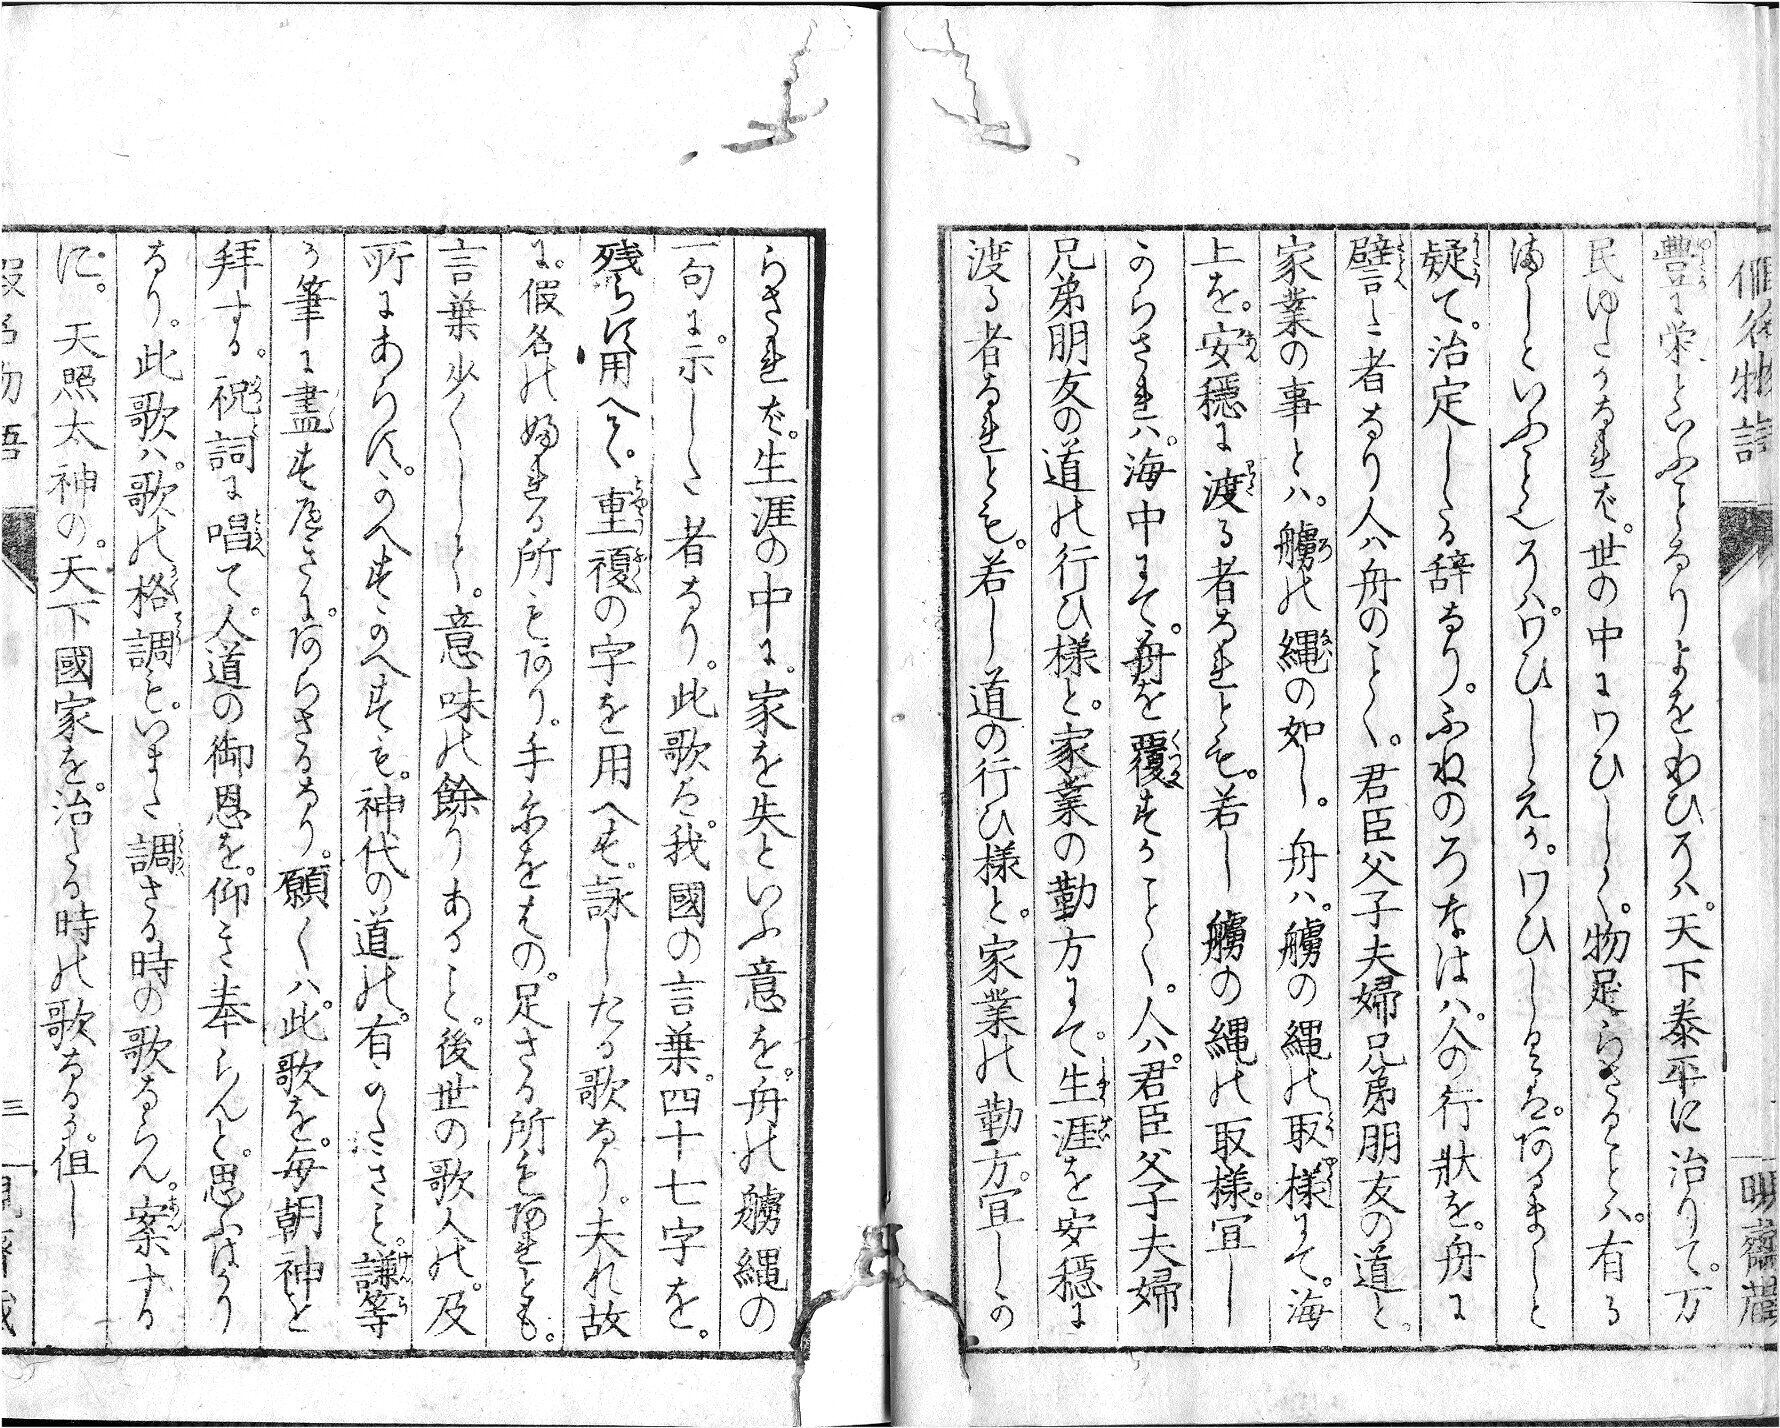 假名物語
明齋蔵
豊に栄といふことなりよをわひるハ。天下泰平に治りて。万
民ゆたかなれバ。世の中にワひしく。物足らさることハ。有る
ましといふことえるハ。ワひしえか。ワひしけれと。あるましと
疑て。治定したる辞なり。ふねのろなはハ。人の行状を。舟に
譬した者なり人ハ舟のことく。君臣父子夫婦兄弟朋友の道と。
家業の事とハ。艣の縄の如し。舟ハ。艣の縄の取様にて。海
上を。安穏に渡る者なれとも。若し艣の縄の取様。宜し
からされハ。海中にて。舟を覆すかことく。人ハ。君臣父子夫婦
兄弟朋友の道の行ひ様と。家業の勤方にて。生涯を安穏に
渡る者なれとも。若し道の行ひ様と。家業の勤方。宜しか
らされバ。生涯の中に。家を失といふ意を。舟の艣縄の
一句に。示した者なり。此歌は。我國の言葉。四十七字を。
残らす用へて。重複の字を用へす。詠したる歌なり。夫れ故
に。假名の婦れる所もあり。手尓をはの。足さる所もあれとも。
言葉少くして。意味の餘りあること。後世の歌人の。及
所にあらす。かへすかへすも。神代の道の。有かたきこと。謙等
か筆に盡すへきに。あらさるなり。願くハ。此歌を。毎朝神と
拜する。祝詞に唱て。人道の御恩を。仰き奉らんと。思ふはかり
なり。此歌ハ。歌の格調と。いまた調さる時の歌ならん。案する
に。天照太神の。天下國家を。治たる時の歌なるか。但し
假名物語
三